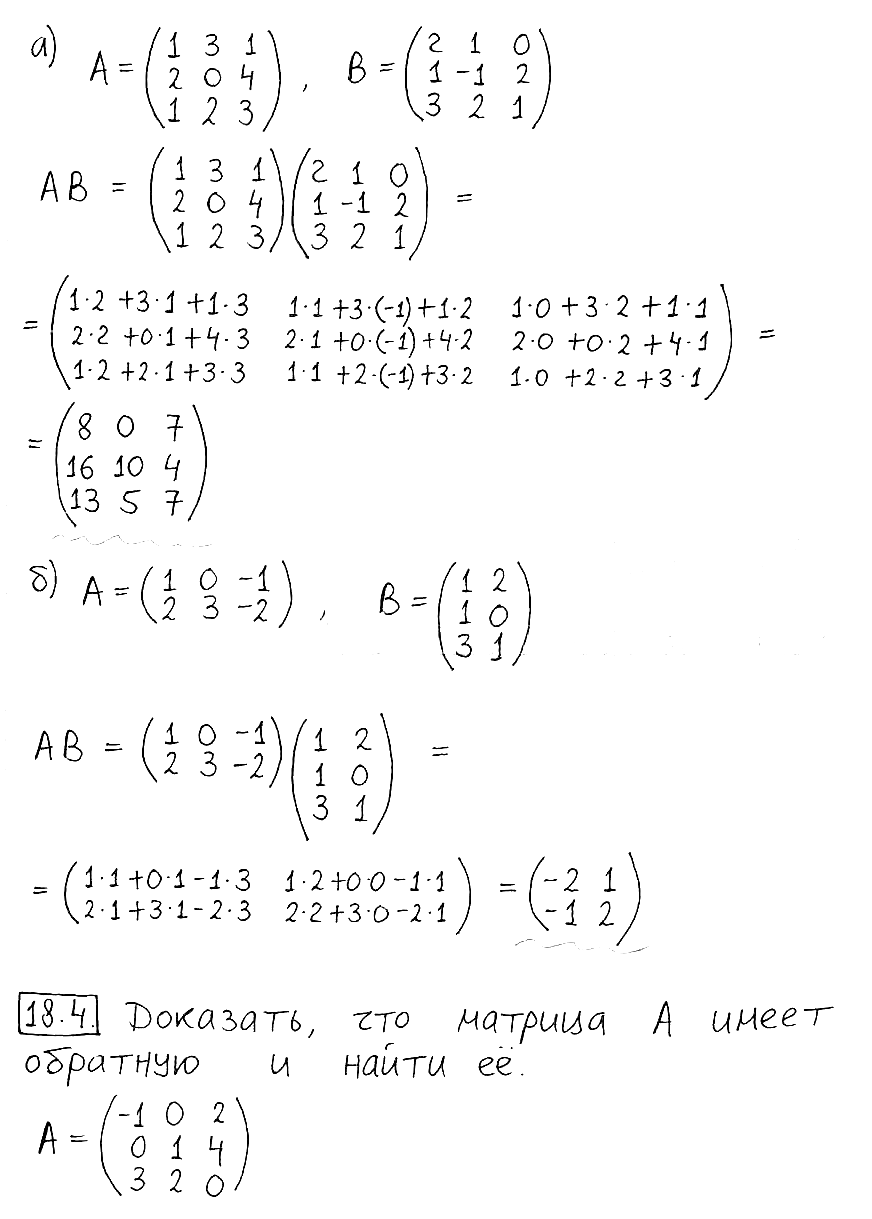 а) A = (1 3 1
2 0 4
1 2 3), B = (2 1 0
1 -1 2
3 2 1)
AB = (1 3 1
2 0 4
1 2 3)(2 1 0
1 -1 2
3 2 1) =
= (1·2 +3·1 +1·3 1·1 +3·(-1)+1·2 1·0 +3·2 +1·1
2·2 +0·1 +4·3 2·1 +0·(-1)+4·2 2·0 +0·2 +4·1
1·2 +2·1 +3·3 1·1 +2·(-1)+3·2 1·0 +2·2 +3·1) =
= (8 0 7
16 10 4
13 5 7)
б) A = (1 0 -1
2 3 -2), B = (1 2
1 0
3 1)
AB = (1 0 -1
2 3 -2)(1 2
1 0
3 1) =
= (1·1+0·1-1·3 1·2+0·0-1·1
2·1+3·1-2·3 2·2+3·0-2·1) = (-2 1
-1 2)
18.4. Доказать, что матрица A имеет
обратную и найти её.
A = (-1 0 2
0 1 4
3 2 0)